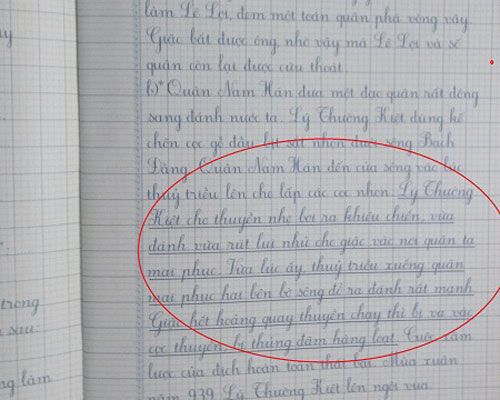 làm Lê Lợi, đem một toán quân phá vòng vây
Giặc bắt được ông, nhờ vậy mà Lê Lợi và số
quân còn lại được cứu thoát
b) Quân Nam Hán đưa một đạo quân rất đông
sang đánh nước ta. Lý Thường Kiệt dùng kế
chôn cọc gỗ đầu bịt sắt nhọn dưới sông Bạch
Đằng. Quân Nam Hán đến cửa sông vào lúc
thuỷ triều lên che lấp các cọc nhọn. Lý Thường
Kiệt cho thuyền nhẹ bơi ra khiêu chiến, vừa
đánh vừa rút lui nhử cho giặc vào nơi quân ta
mai phục. Vừa lúc ấy, thuỷ triều xuống, quân
mai phục hai bên bờ sông đổ ra đánh rất mạnh
Giặc hốt hoảng quay thuyền chạy thì bị va vào
cọc thuyền bị thủng đâm hàng loạt. Cuộc xâm
lược của địch hoàn toàn thất bại. Mùa xuân
năm 939 Lý Thường Kiệt lên ngôi vua
trong
sau:
làm